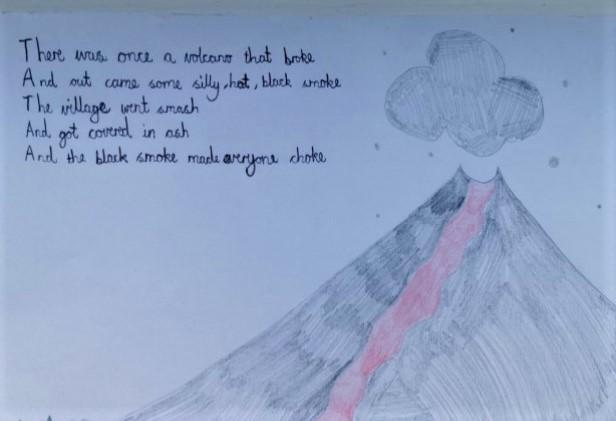 There was once a volcano that broke
And out came some silly, hot, black smoke
The village went smash
And got covered in ash
And the black smoke made everyone choke